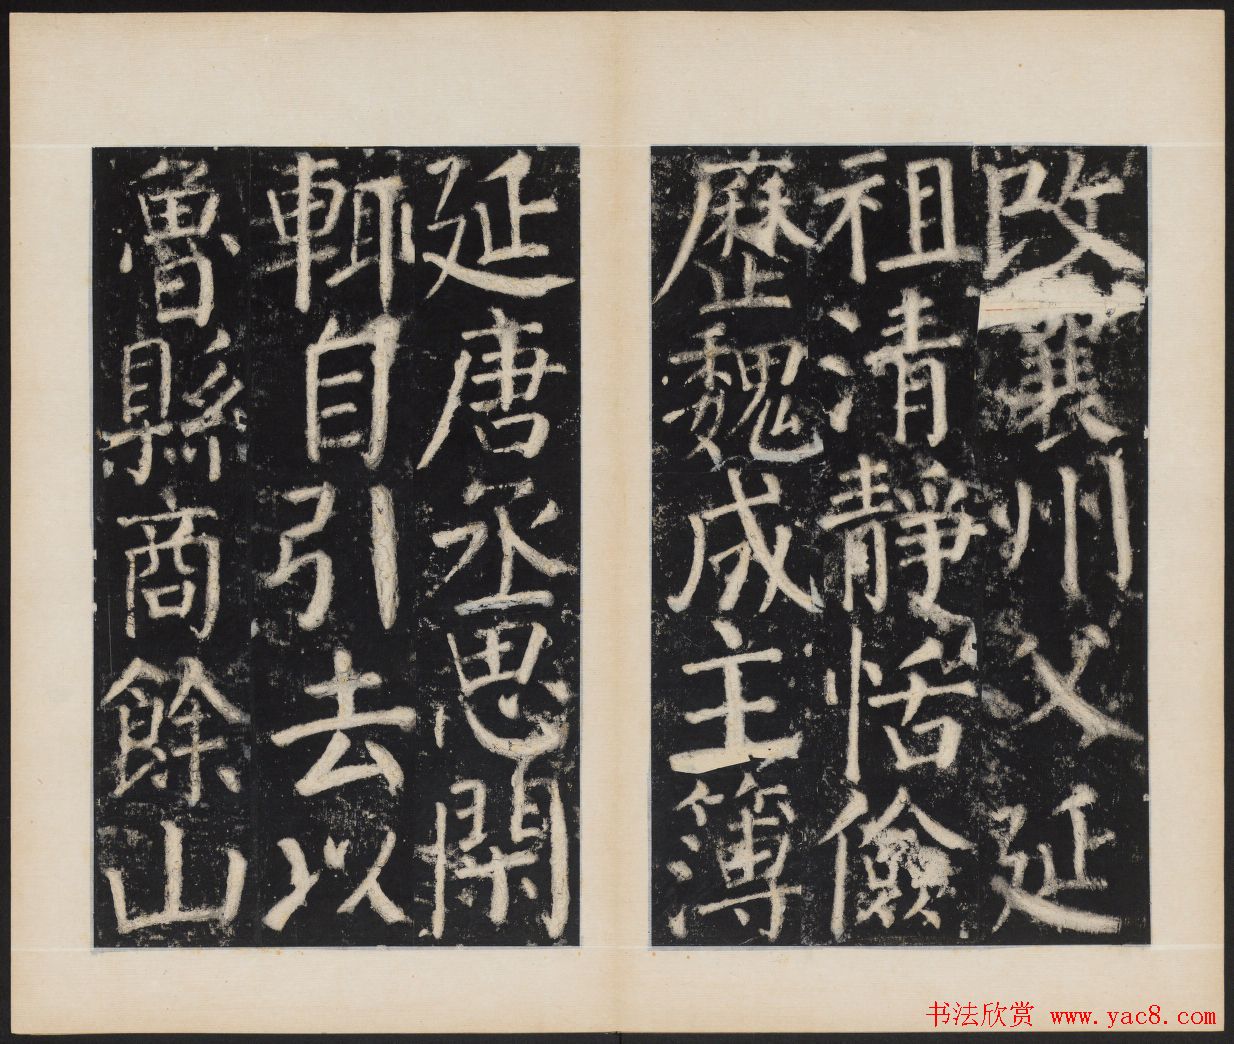 改襄州父延
祖清靜恬儉
歷魏成主簿
延唐丞思閑
輒自引去以
魯縣商餘山
书法欣赏 www.yac8.com